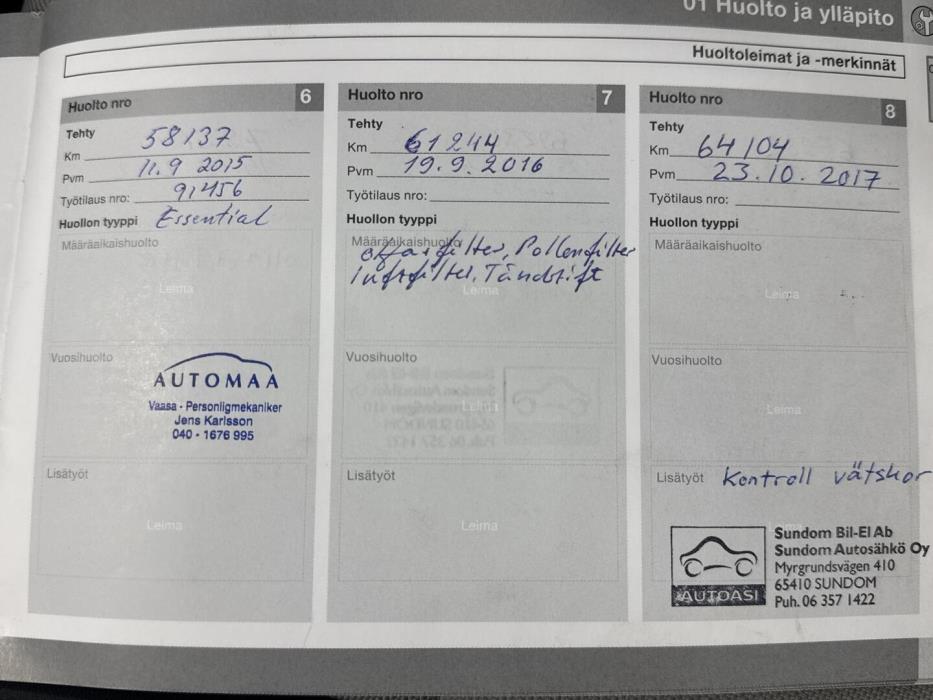 01 Huolto ja ylläpito
Huoltoleimat ja -merkinnät
Huolto nro 6
Tehty
Km 58137
Pvm 11.9 2015
Työtilaus nro: 91456
Huollon tyyppi Essential
Määräaikaishuolto
Leima
Vuosihuolto
AUTOMAA
Vaasa - Personligmekaniker
Jens Karlsson
040 - 1676 995
Lisätyöt
Leima
Huolto nro 7
Tehty
Km 61244
Pvm 19.9.2016
Työtilaus nro:
Huollon tyyppi
Määräaikaishuolto
Pollenfilter
luftfilter, Tändstift
Leima
Vuosihuolto
Leima
Lisätyöt
Leima
Huolto nro 8
Tehty
Km 64104
Pvm 23.10.2017
Työtilaus nro:
Huollon tyyppi
Määräaikaishuolto
Leima
Vuosihuolto
Leima
Lisätyöt Kontroll vätskor
Leima
AUTOASI
Sundom Bil-El Ab
Sundom Autosähkö Oy
Myrgrundsvägen 410
65410 SUNDOM
Puh. 06 357 1422